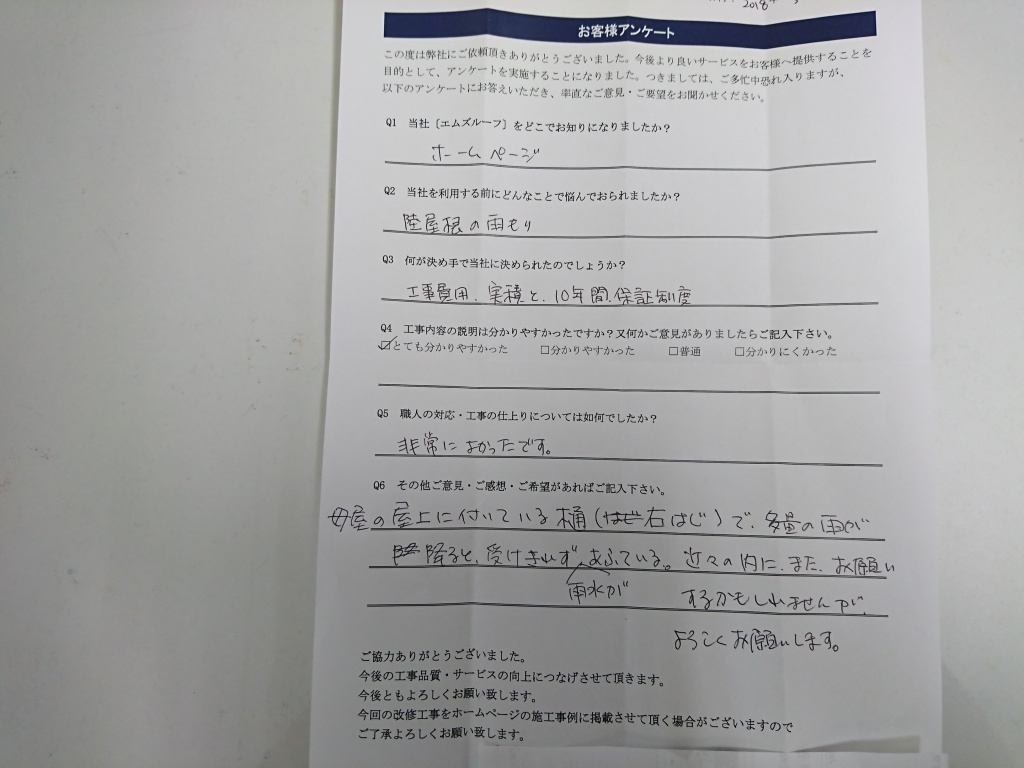 2018年
お客様アンケート
この度は弊社にご依頼頂きありがとうございました。今後より良いサービスをお客様へ提供することを
目的として、アンケートを実施することになりました。つきましては、ご多忙中恐れ入りますが、
以下のアンケートにお答えいただき、率直なご意見・ご要望をお聞かせください。
Q1 当社〔エムズルーフ〕をどこでお知りになりましたか?
ホームページ
Q2 当社を利用する前にどんなことで悩んでおられましたか?
陸屋根の雨もり
Q3 何が決め手で当社に決められたのでしょうか?
工事費用、実積と、10年間、保証制度
Q4 工事内容の説明は分かりやすかったですか?又何かご意見がありましたらご記入下さい。
☑とても分かりやすかった □分かりやすかった □普通 □分かりにくかった
Q5 職人の対応・工事の仕上りについては如何でしたか?
非常によかったです。
Q6 その他ご意見・ご感想・ご希望があればご記入下さい。
母屋の屋上に付いている桶(右はじ)で、多量の雨が
降ると、受けきれずあふている。近々の内に、また、お願い
雨水が するかもしれませんが、
よろしくお願いします。
ご協力ありがとうございました。
今後の工事品質・サービスの向上につなげさせて頂きます。
今後ともよろしくお願い致します。
今回の改修工事をホームページの施工事例に掲載させて頂く場合がございますので
ご了承よろしくお願い致します。